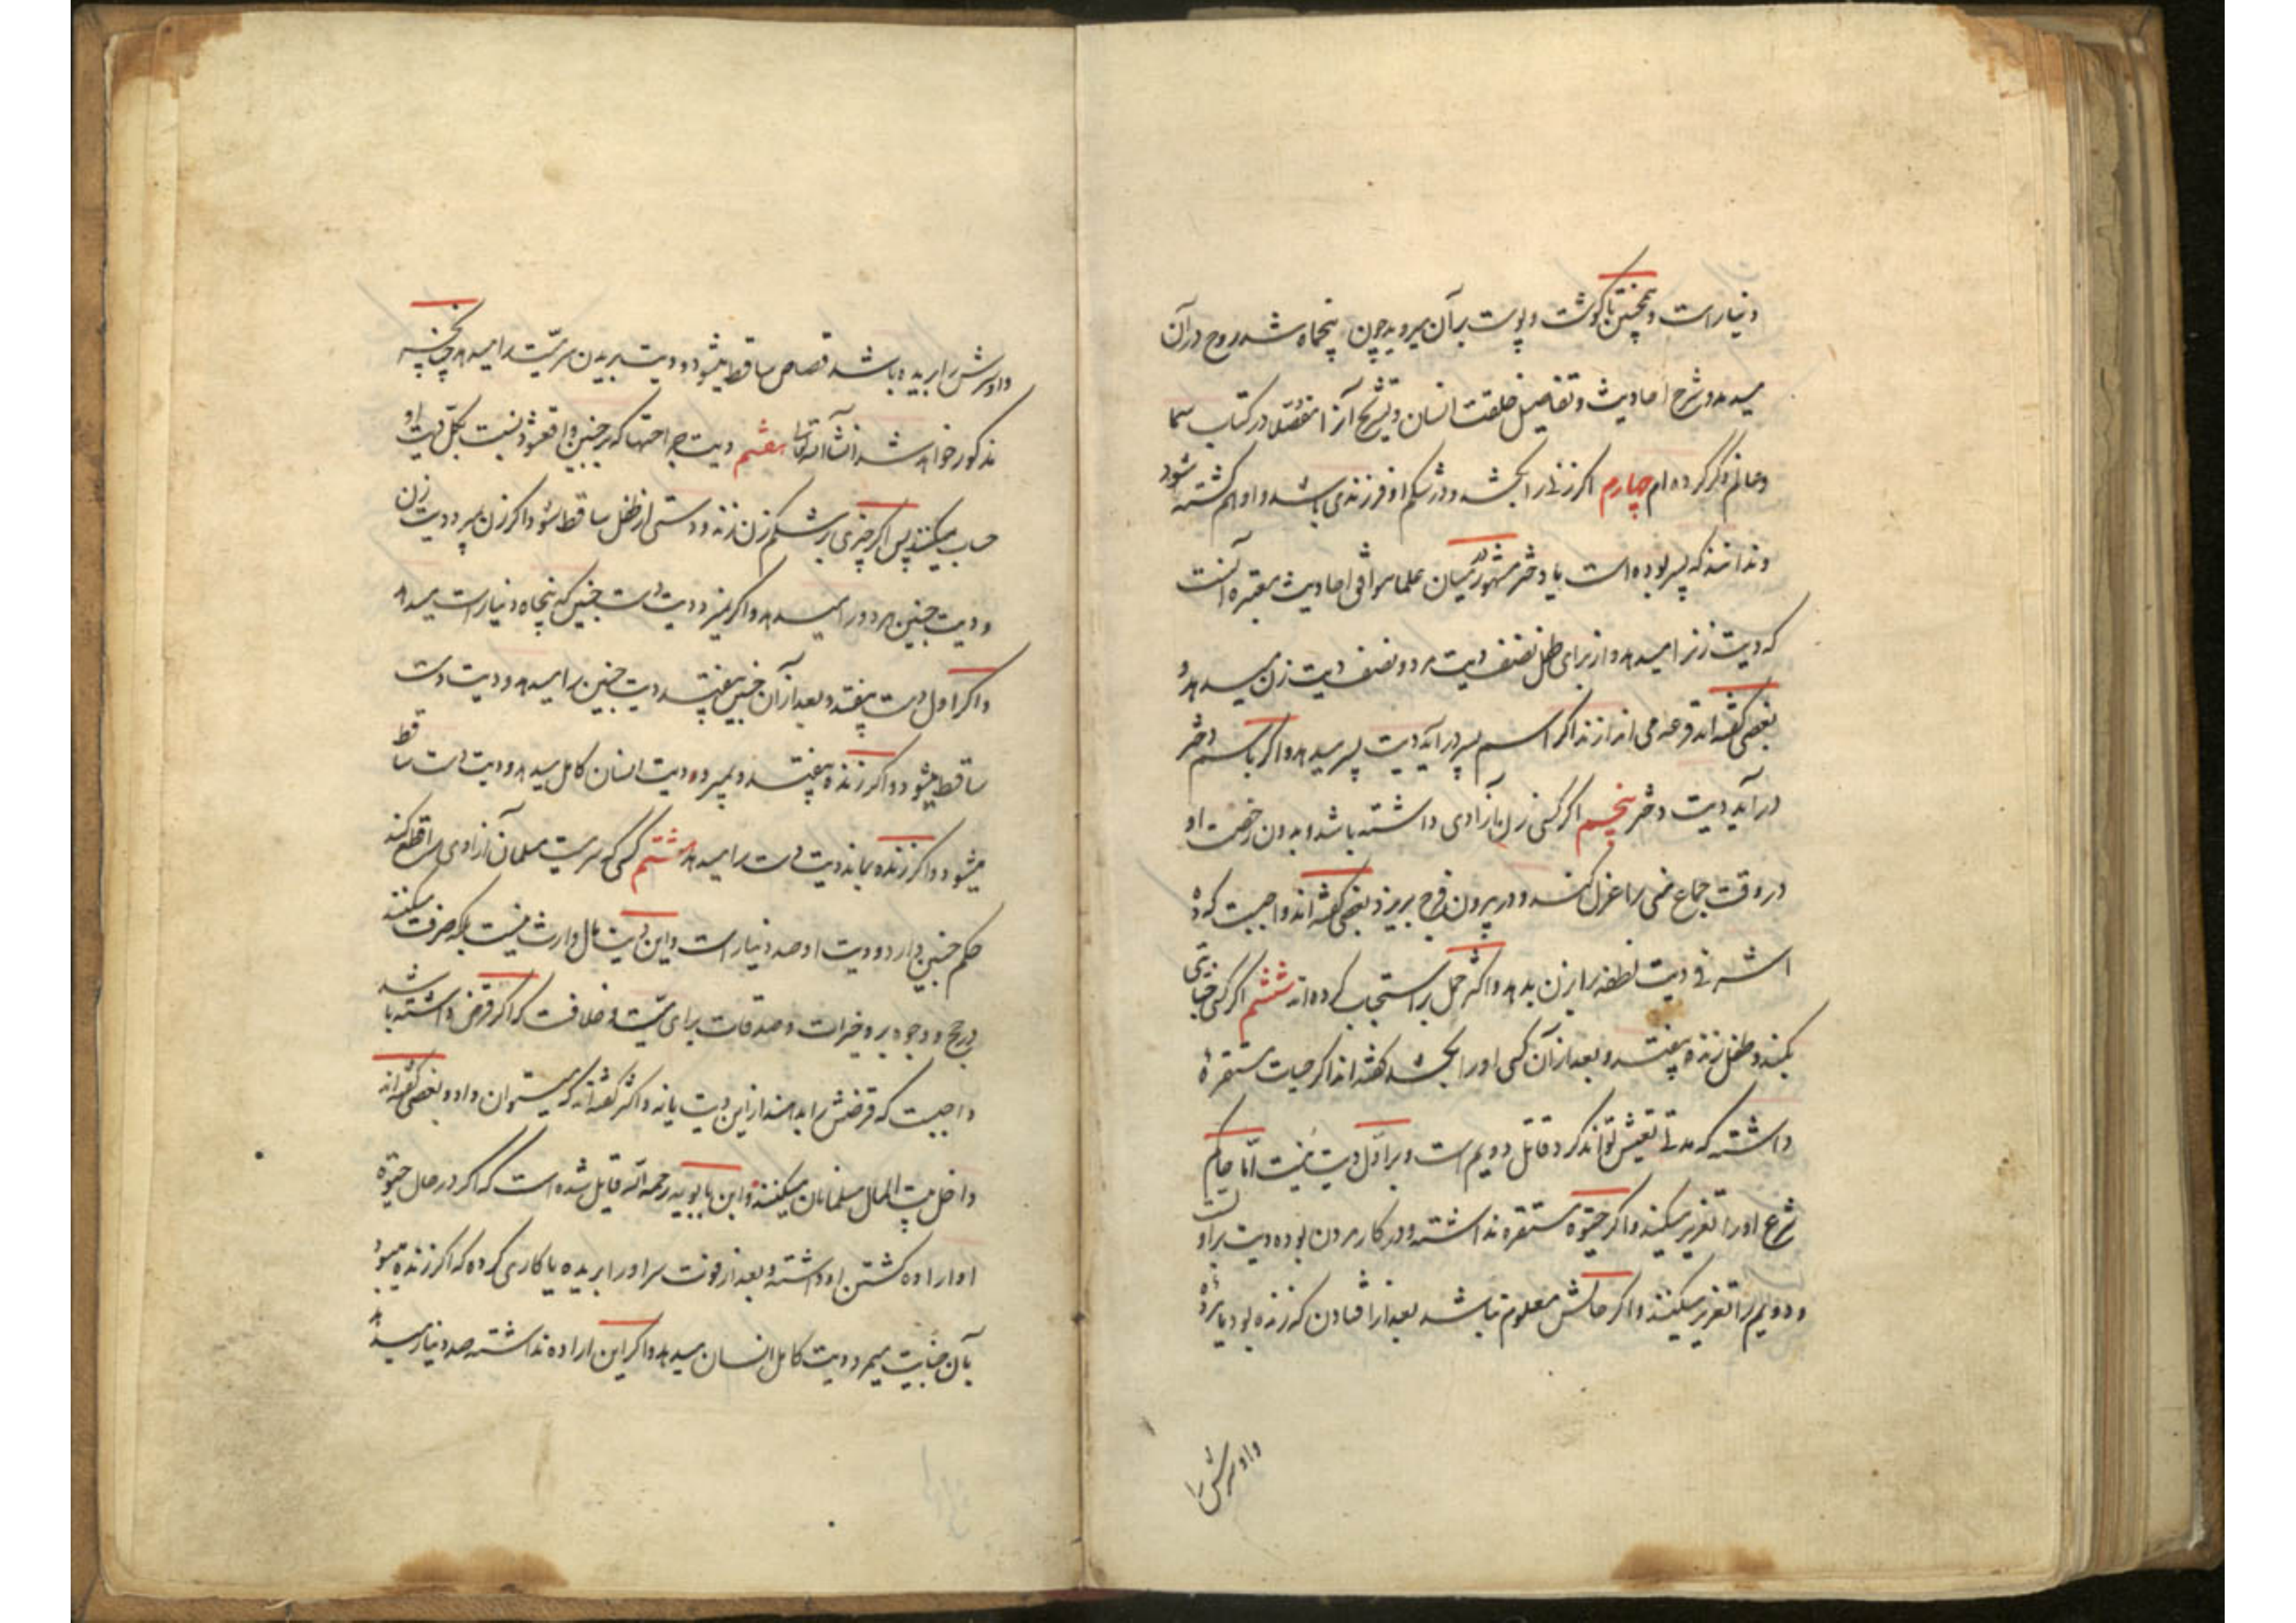 دنیار است و همچنین تا گوشت و پوست بر آن میروید چون پنجماه شد روح در آن
میدمد و شرح احادیث و تفاصیل خلقت انسان و تشریح آنرا مفصّلا در کتاب سما
و عالم ذکر کرده ام چهارم اکر زنی را بکشد و در شکم او فرزندی باشد و او هم کشته شود
و ندانند که پسر بوده است یا دختر مشهور در میان علما موافق احادیث معتبره آنست
که دیت زنرا میدهد و از برای طفل نصف دیت مرد و نصف دیت زن میدهد و
بعضی گفته اند قرعه می اندازند اکر اسم پسر در آید دیت پسر میدهد و اکر باسم دختر
در آید دیت دختر پنجم اکر کسی زن آزادی داشته باشد و بدون رخصت او
در وقت جماع منی را عزل کند و در بیرون فرج بریزد بعضی گفته اند واجبست که ده
اشرفی دیت نطفه را بزن بدهد و اکثر حمل بر استحباب کرده اند ششم اکر کسی جنایتی
بکند و طفل زنده بیفتد و بعد از آن کسی او را بکشد گفته اند اکر حیات مستقره
داشته که مدتی تعیش تواند کرد قاتل دویم است و بر اوّل دیت نیست امّا حاکم
شرع او را تعزیر میکند و اکر حیوة مستقره نداشته و در کار مردن بوده دیت بر اولست
و دویم را تعزیر میکنند و اکر حالش معلوم نباشد بعد از افتادن که زنده بود یا مرده
و او سرش را
و او سرش را بریده باشد قصاص ساقط میشود و دیت بریدن سر میّت را میدهد چنانچه
مذکور خواهد شد انشاء الله تعالی هفتم دیت جراحتها که بر جنین واقعشود نسبت بکلّ دیت او
حساب میکنند پس اکر چیزی بر شکم زن زند و دستی از طفل ساقط شود اکر زن میرد دیت زن
و دیت جنین هر دو را میدهد و اکر نمیرد دیت دست جنین که پنجاه دنیار است میدهد
و اکر اول دست بیفتد و بعد از آن جنین بیفتد دیت جنین را میدهد و دیت دست
ساقط میشود و اکر زنده بیفتد و بمیرد دیت انسان کامل میدهد و دیت دست ساقط
میشود و اکر زنده بماند دیت دست را میدهد هشتم کسی که سر میت مسلمان آزادی را قطع کند
حکم جنین دارد و دیت او صد دنیار است و این دیت مال وارث نیست بلکه صرف میکنند
در حج و وجوه بر و خیرات و صدقات برای میّت و خلافست که اکر قرض داشته باشد
واجبست که قرضش را بدهند از این دیت یا نه و اکثر گفته اند که میتوان داد و بعضی گفته اند
داخل بیت المال مسلمانان میکنند و ابن بابویه رحمه الله قایل شده است که اکر در حال حیوة
او اراده کشتن او داشته و بعد از فوت سر او را بریده یا کاری کرده که اکر زنده میبود
بآن جنایت میمرد دیت کامل انسان میدهد و اکر این اراده نداشته صد دنیار میدهد